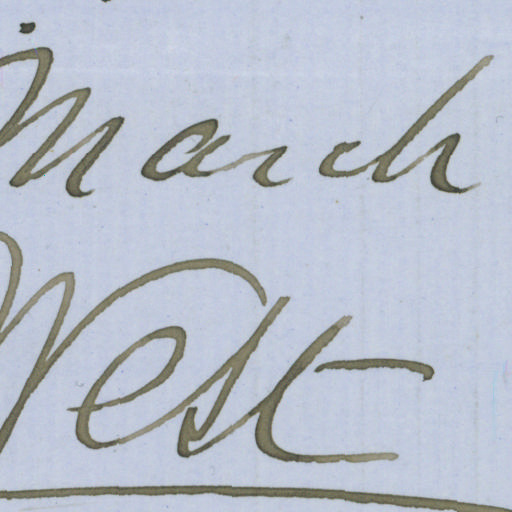 March
West